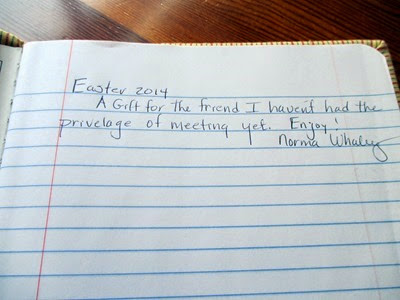 Easter 2014
A Gift for the friend I haven't had the
privelage of meeting yet. Enjoy!
Norma Whaley